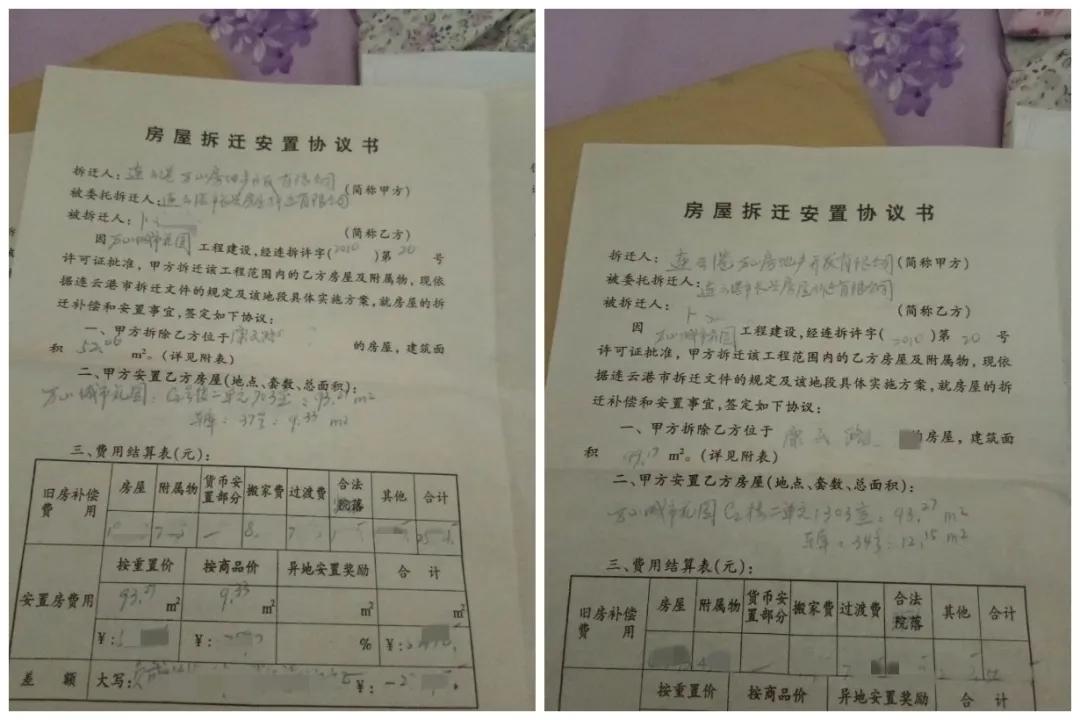 房屋拆迁安置协议书
拆迁人：连云港万山房地产开发有限公司（简称甲方）
被委托拆迁人：连云港市 房屋拆迁有限公司
被拆迁人：卜（简称乙方）
因 万山城市花园 工程建设，经连拆许字（2010）第 20 号
许可证批准，甲方拆迁该工程范围内的乙方房屋及附属物，现依
据连云港市拆迁文件的规定及该地段具体实施方案，就房屋的拆
迁补偿和安置事宜，签定如下协议：
一、甲方拆除乙方位于 康云 的房屋，建筑面
积 52.06 m²。（详见附表）
二、甲方安置乙方房屋（地点、套数、总面积）：
万山城市花园：C2号楼二单元903室：93.27 m²
车库：37号：9.33 m²
三、费用结算表（元）：
旧房补偿费用 房屋 附属物 货币安置部分 搬家费 过渡费 合法院落 其他 合计
安置房费用 按重置价 按商品价 异地安置奖励 合 计
93.27 m² 9.33 m² m² m²
¥： ¥： % ¥：
差 额 大写： ¥：
房屋拆迁安置协议书
拆迁人：连云港万山房地产开发有限公司（简称甲方）
被委托拆迁人：连云港市 房屋拆迁有限公司
被拆迁人：卜（简称乙方）
因 万山城市花园 工程建设，经连拆许字（2010）第 20 号
许可证批准，甲方拆迁该工程范围内的乙方房屋及附属物，现依
据连云港市拆迁文件的规定及该地段具体实施方案，就房屋的拆
迁补偿和安置事宜，签定如下协议：
一、甲方拆除乙方位于 康云 的房屋，建筑面
积 m²。（详见附表）
二、甲方安置乙方房屋（地点、套数、总面积）：
万山城市花园C2楼二单元1303室：93.27 m²
车库：34号：12.15 m²
三、费用结算表（元）：
旧房补偿费用 房屋 附属物 货币安置部分 搬家费 过渡费 合法院落 其他 合计
按重置价 按商品价 异地安置奖励 合 计